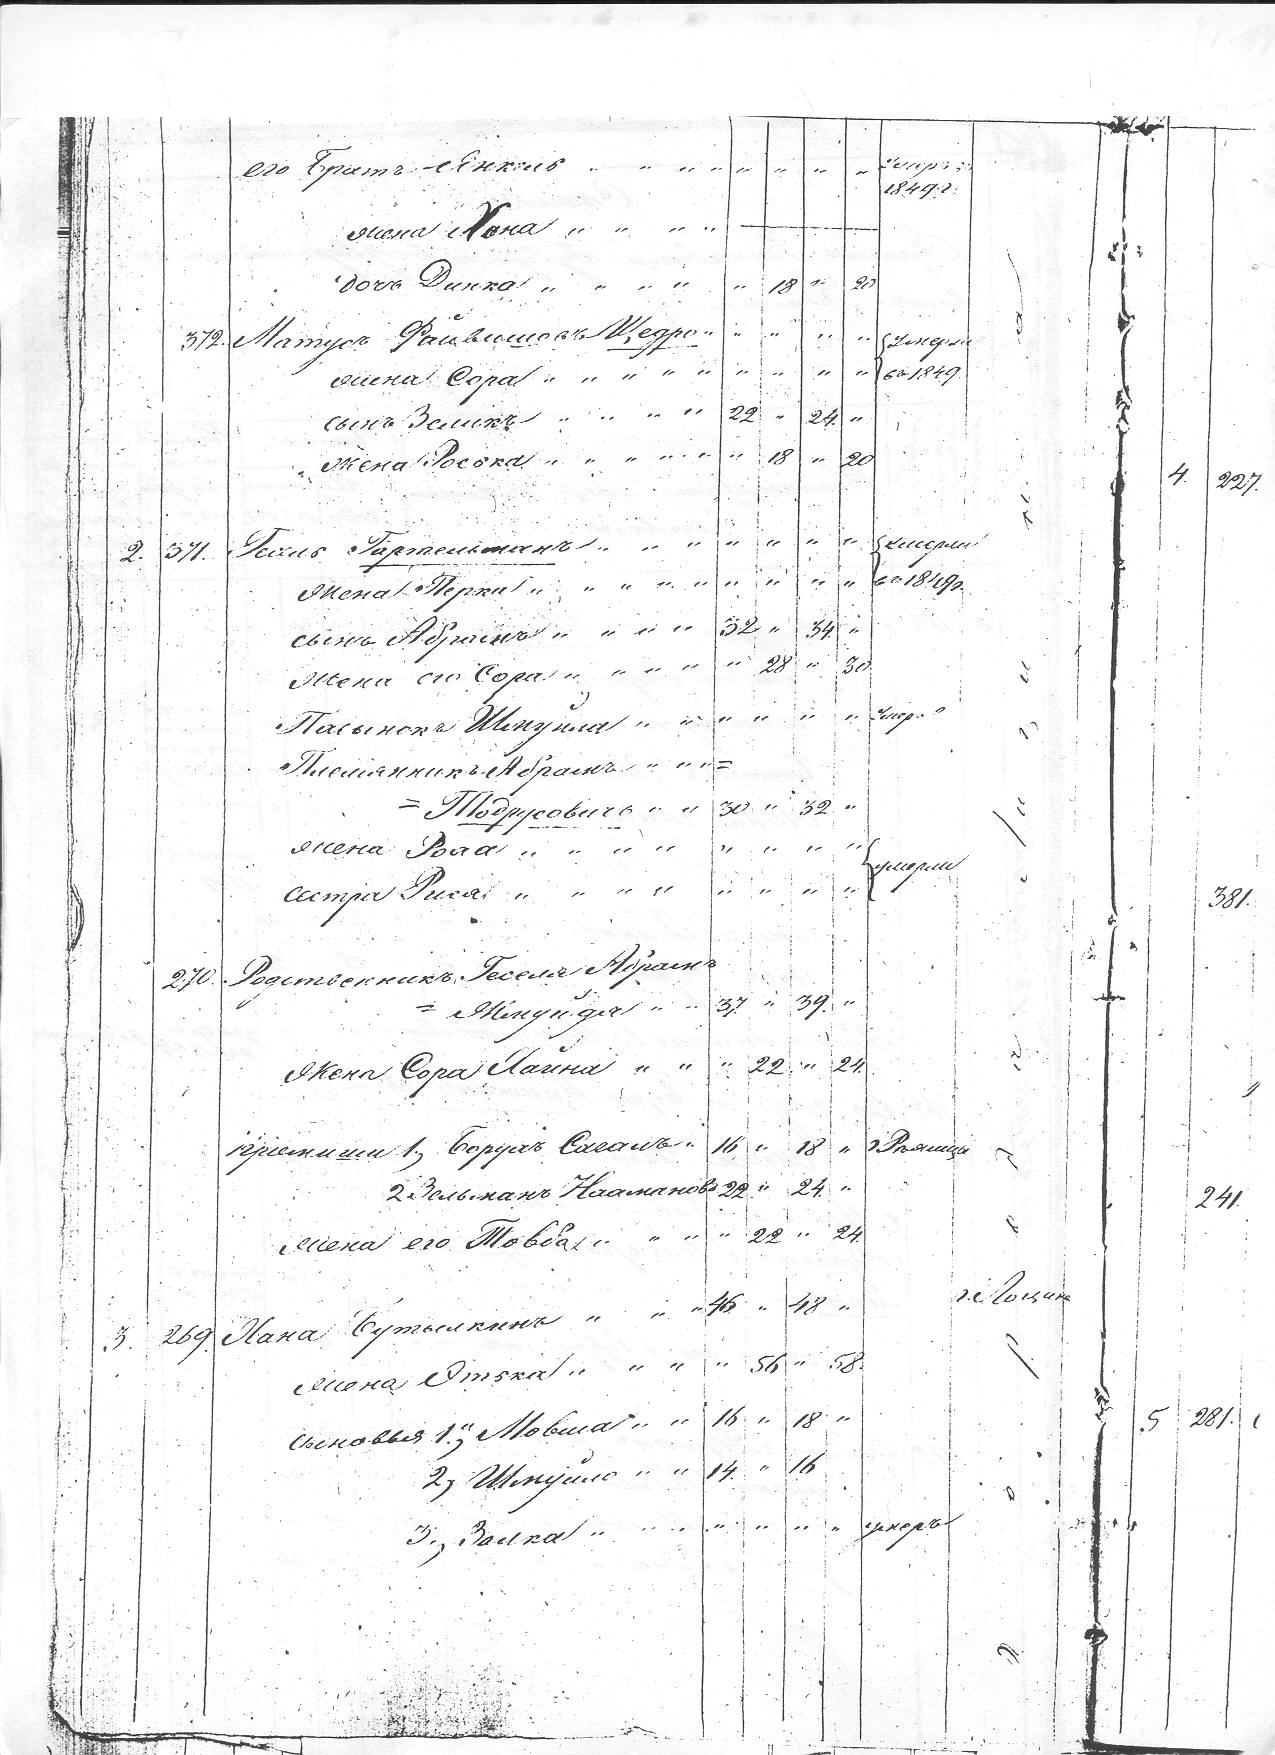 его Братъ Янкель " " " " " " " " умеръ въ
1849 г.
жена Хана " " " "
дочь Динка " " " " " 18 " 20
372. Матусъ Файвишовъ Щедро " " " " " умерли
жена Сора " " " " " " " " " въ 1849
сынъ Зеликъ " " " " 22 " 24 "
жена Роська " " " " " " 18 " 20
4. 227.
2. 371. Гесель Гартельманъ " " " " " " " умерли
жена Перка " " " " " " " " " въ 1849 г.
сынъ Абрамъ " " " " 32 " 34 "
жена его Сора " " " " " 28 " 30
Пасынокъ Шмуйла " " " " " " умеръ
Племянникъ Абрамъ " " " =
= Тодрусовичъ " " 30 " 32 "
жена Рола " " " " " " " " умерли
сестра Рися " " " " " " " "
381.
270. Родственникъ Геселя Абрамъ
= Жмуйда " " 37 " 39 "
жена Сора Хайна " " " 22 " 24
Приемыши 1, Борухъ Сагалъ " 16 " 18 "
2 Зельманъ Наамановъ 22 " 24 "
241.
жена его Товба " " " " 22 " 24
3. 269. Хана Бутылкинъ " " " 46 " 48 "
жена Этька " " " " " 56 " 58
сыновья 1, Мовша " " 16 " 18 "
5 281.
2, Шмуйло " " 14 " 16
3, Залка " " " " " " " умеръ